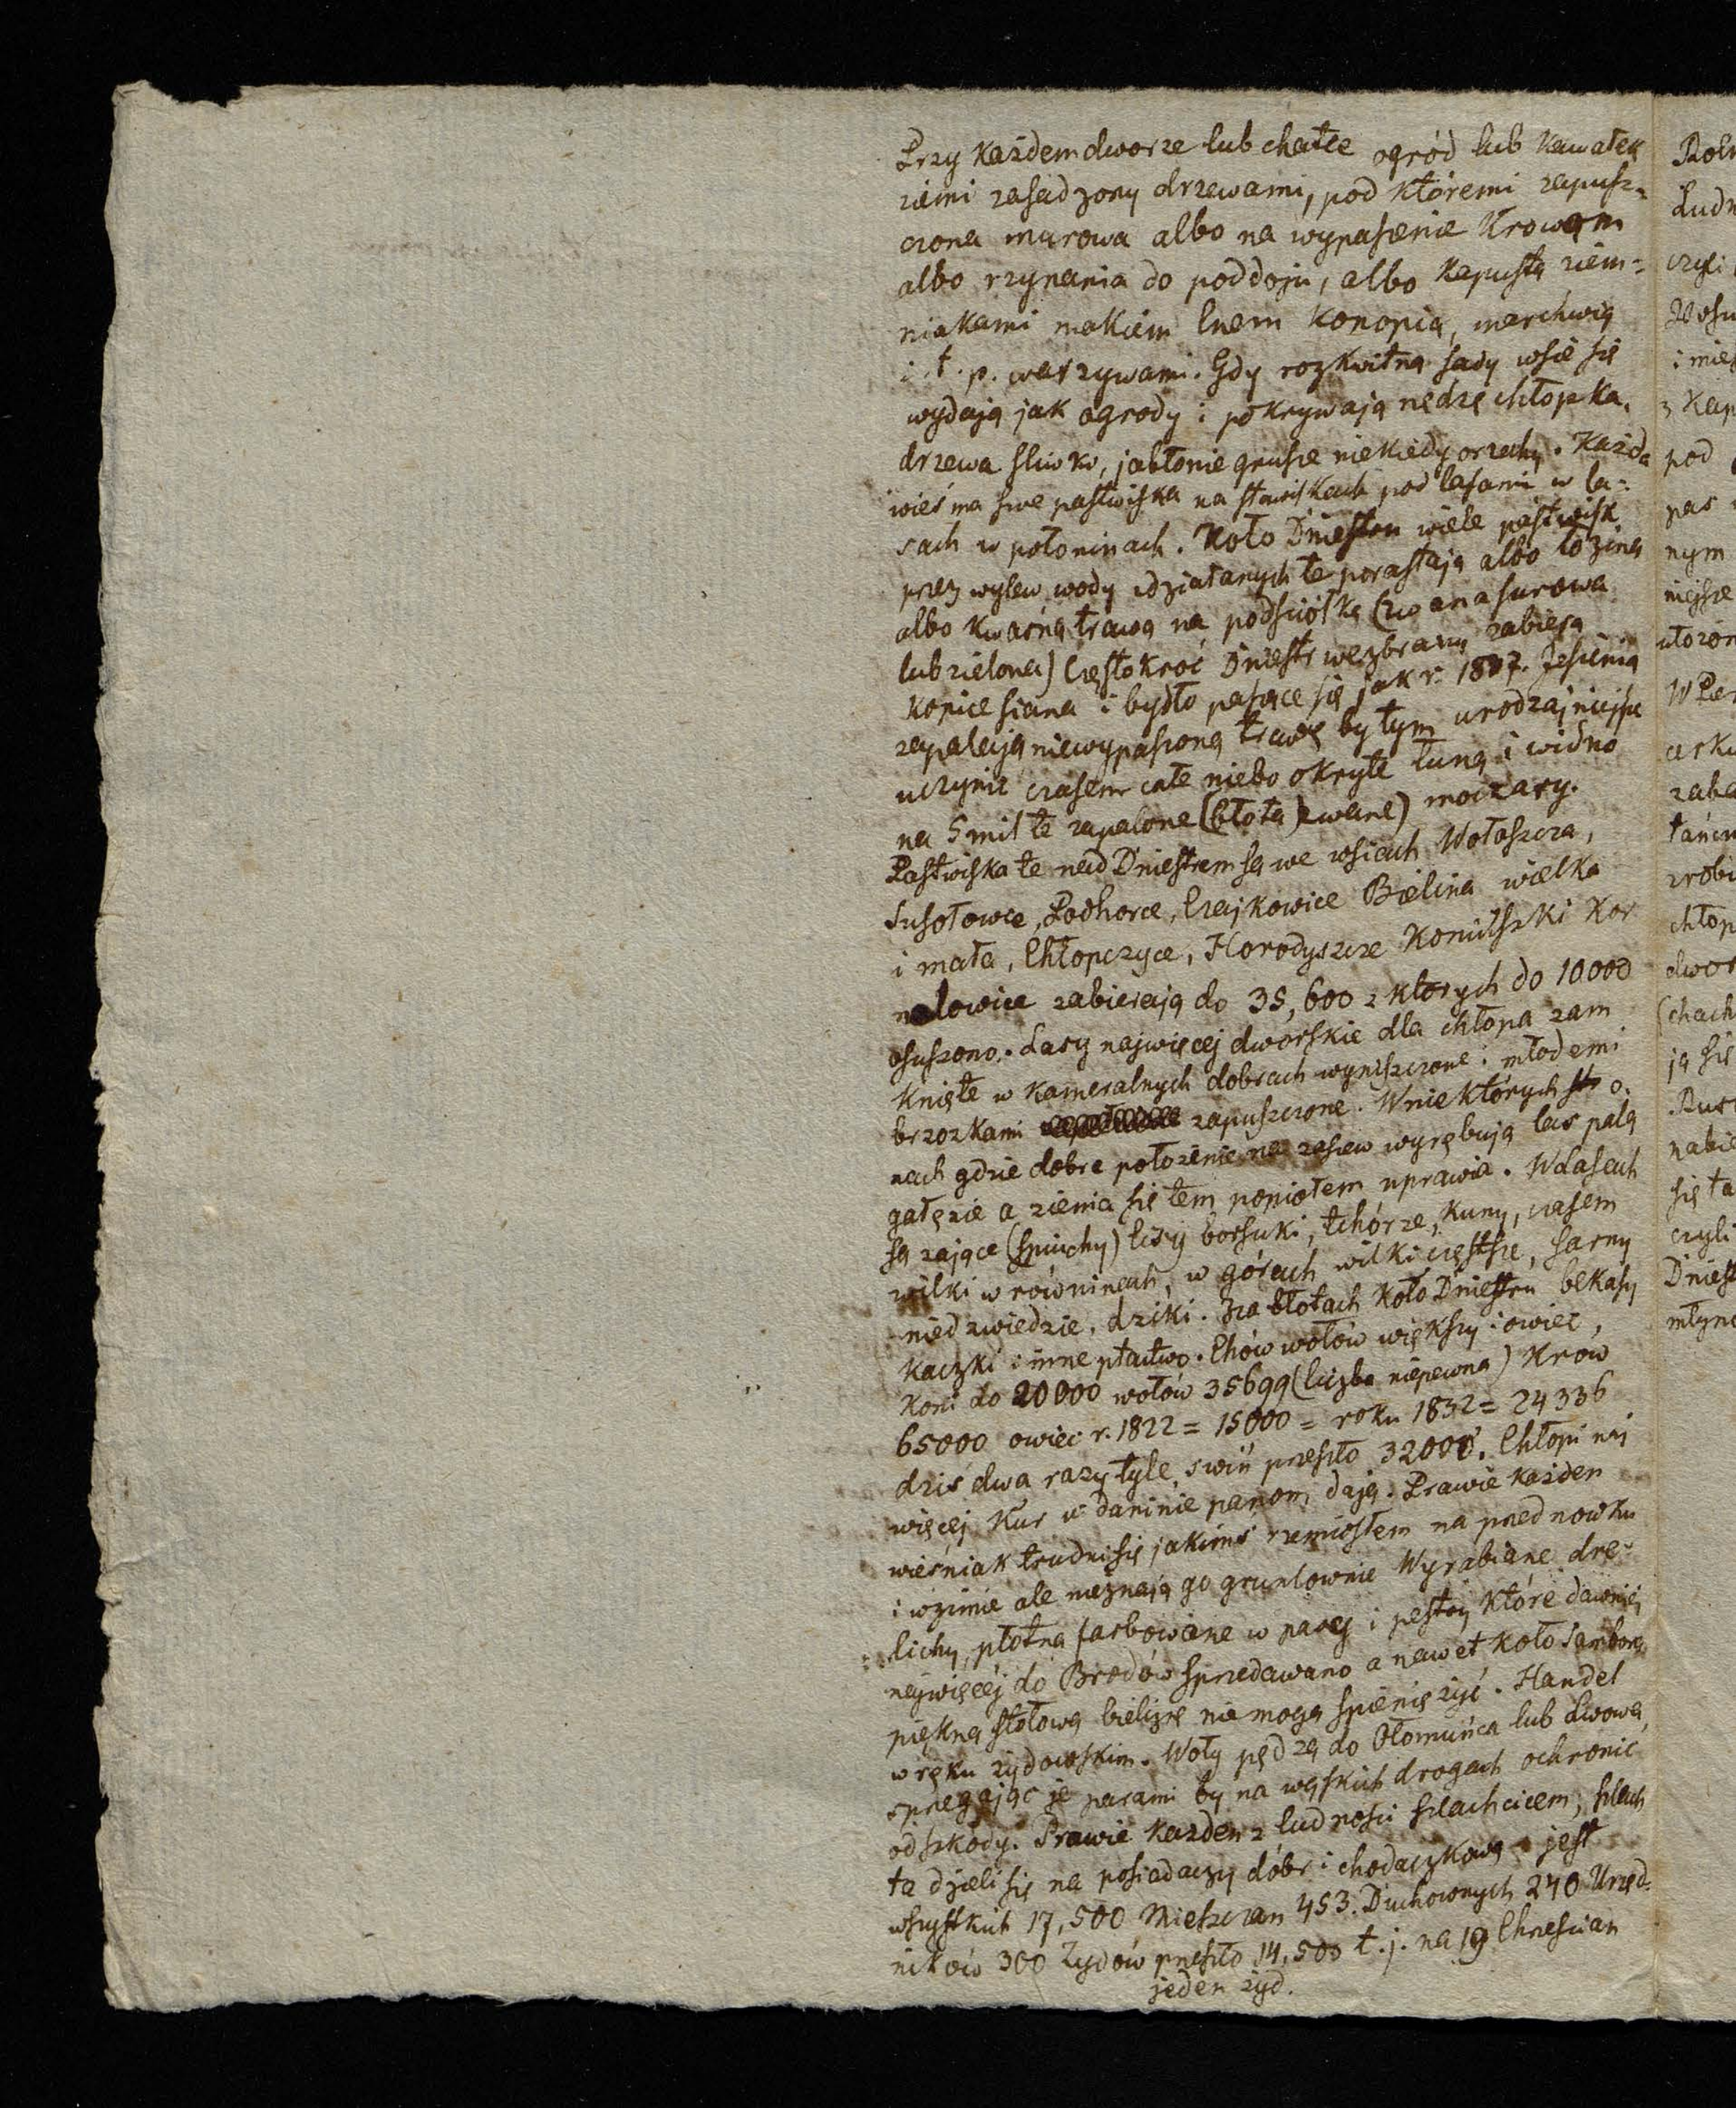 Przy każdem dworze lub chałce ogród lub kawałek
ziemi zasadzony drzewami, pod któremi zapusz-
czona murowa albo na wypasienie Krowom
albo rzynania do poddoju, albo kapustą ziem=
niakami makiem lnem konopią, marchwią
i t. p. warzywami. Gdy rozkwitną sady wsie się
wydają jak ogrody i pokrywają nędzę chłopka.
drzewa sliwko, jabłonie grusze niekiedy orzechy. Każda
wieś ma swe pastwiska na stawiskach pod lasami w la=
sach w połoninach. Koło Dniestru wiele pastwisk
przez wylew wody zdziałanych te porastają albo łoziną
albo kwaśną trawą na podściółkę (zwana surowa
lub zielona) Częstokroć Dniestr wezbrany zabiera
kopice siana i bydło pasące się jak r. 1807. Jesienią
zapalają niewypasioną trawę by tym urodzajniejsze
uczynić czasem całe niebo okryte łuną i widno
na 5 mil te zapalone (błota zwane) moczary.
Pastwiska te nad Dniestrem są we wsiach Wołoszcza,
Susołowce, Podhorce, Czajkowice Bielina wielka
i mała, Chłopczyce, Horodyszcze Koniuszki Kor
nalowice zabierają do 35,600 z których do 10000
osuszono. Lasy najwięcej dworskie dla chłopa zam
knięte w kameralnych dobrach wyniszczone i młodemi
brzozkami zapuszczone. W niektórych o.
nach gdzie dobre położenie na zasiew wyrębują las palą
gałęzie a ziemia się tem popiołem uprawia. W Lasach
są zające (śpiuchy) lisy borsuki, tchórze, kuny, czasem
wilki w równinach, w górach wilki częstsze, sarny
niedzwiedzie, dziki. Na błotach koło Dniestru bekasy
kaczki i inne ptactwo. Chów wołów większy i owiec,
Koni do 20000 wołów 35699 (liczba niepewna) Krow
65000 owiec r. 1822 = 15000 = roku 1832 = 24336
dziś dwa razy tyle, swiń przeszło 32000. Chłopi naj
więcej Kur w daninie panom dają. Prawie każden
wieśniak trudni się jakimś rzemiosłem na przednowku
i w zimie ale nieznają go gruntownie Wyrabiane dre=
lichy, płotna farbowane w pasy i pestry które dawniej
najwięcej do Brodów sprzedawano a nawet koło Sambora
piękną stołową bieliznę nie mogą spieniężyć. Handel
w ręku żydowskim. Woły pędzą do Ołomuńca lub Lwowa,
sprzegając je parami by na wąskich drogach ochronić
od szkody. Prawie każden z ludności szlachcicem, szlach
ta dzieli się na posiadaczy dóbr i chodaczkową jest
wszystkich 17,500 Mieszczan 453. Duchownych 240 Urzęd-
ników 300 Żydów przeszło 14,500 t. j. na 19 Chrześcian
jeden żyd.